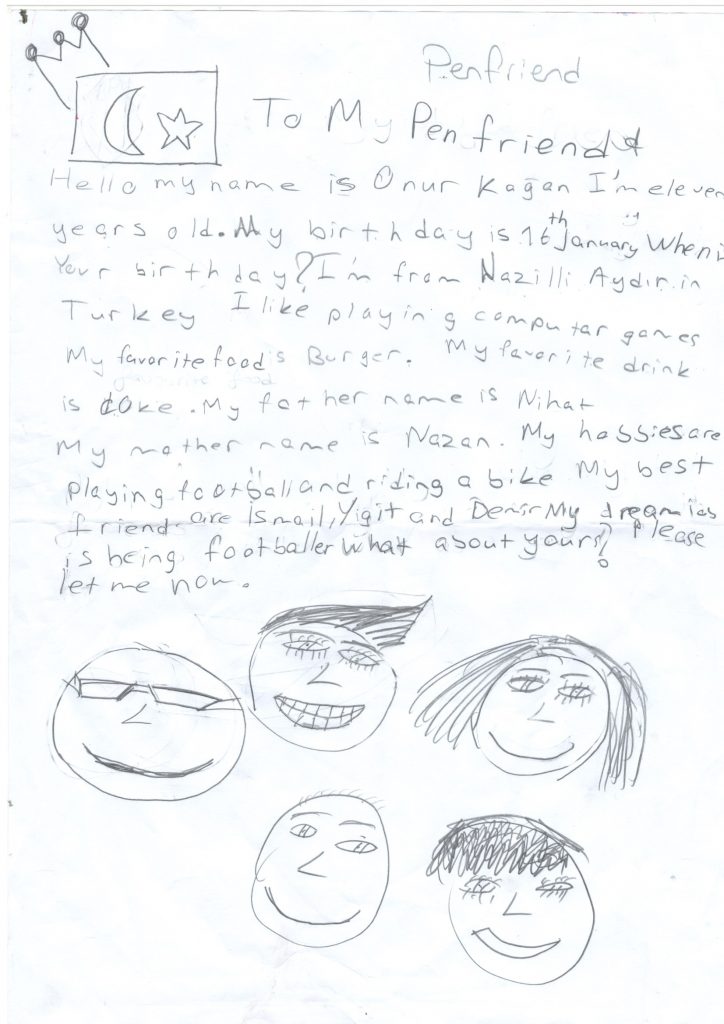 Penfriend
To My Penfriend
Hello my name is Onur Kağan I'm eleven
years old. My birthday is 16th January When is
Your birthday? I'm from Nazilli Aydın in
Turkey I like playing computar games
My favorite food is Burger. My favorite drink
is coke. My father name is Nihat
My mother name is Nazan. My hobbies are
playing football and riding a bike My best
friends are Ismail, Yigit and Demir My dream job
is being footballer What about yours? Please
let me now.